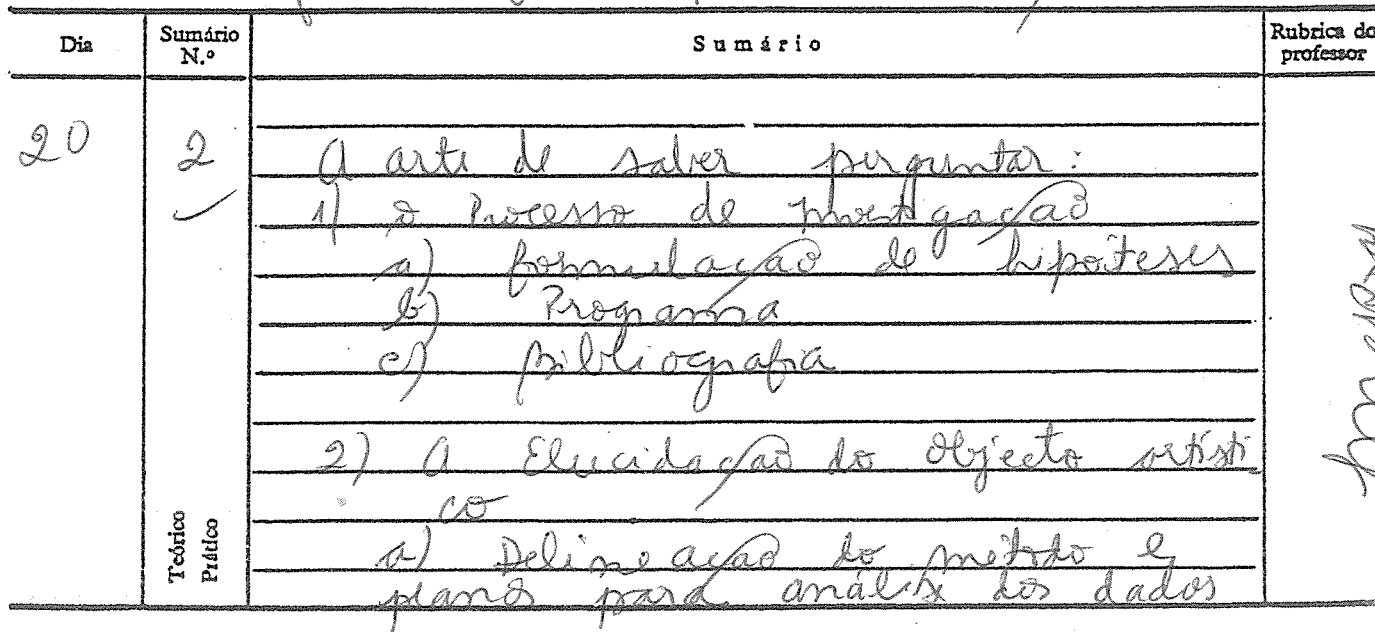 Dia
Sumário N.º
Sumário
Rubrica do professor
20
2
A arte de saber perguntar:
1) o Processo de Investigação
a) formulação de hipóteses
b) Programa
c) Bibliografia
2) A Elucidação do Objecto artísti-
co
a) Delineação do método e
planos para análise dos dados
Teórico
Prático